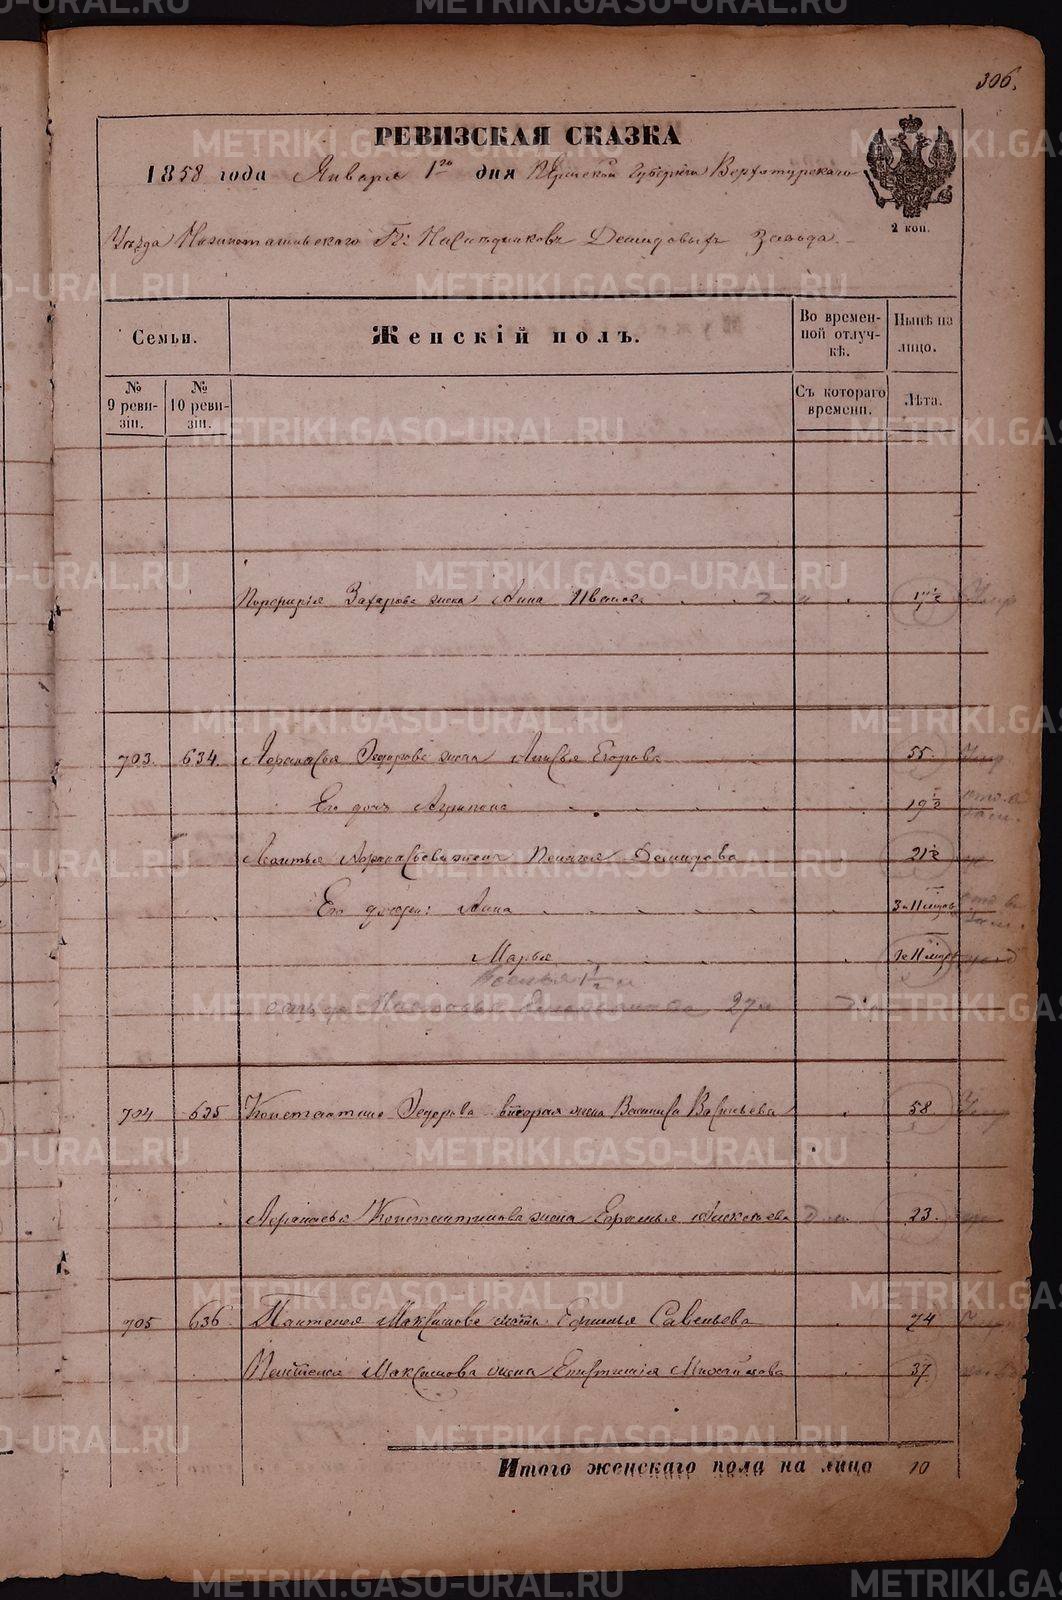 306.
РЕВИЗСКАЯ СКАЗКА
1858 года Января 1го дня Пермской Губернiи Верхотурскаго
2 коп.
Уѣзда Нижнотагильскаго Гг: Наслѣдниковъ Демидовыхъ Завода.
Семьи.
Женскій полъ.
Во времен-
ной отлуч-
кѣ.
Нынѣ на
лицо.
№
9 реви-
зіи.
№
10 реви-
зіи.
Съ котораго
времени.
Лѣта.
Порфирiя Захарова жена Анна Иванова 17 1/2
703. 634. Афанасья Федорова жена Анисья Егорова 55.
Его дочь Агрипена 19 1/2
Леонтья Афанасьева жена Пелагея Демидова 21 1/2
Его дочери: Анна 3 и 11 мцов
Марья
27
704 635 Константина Федорова вторая жена Васильева 58
Афанасья Константинова жена Алексеева 23.
705 636. Пантелея Максимова мать Савельева 74
Пантелея Максимова жена Михайлова 37.
Итого женскаго пола на лицо 10
METRIKI.GASO-URAL.RU